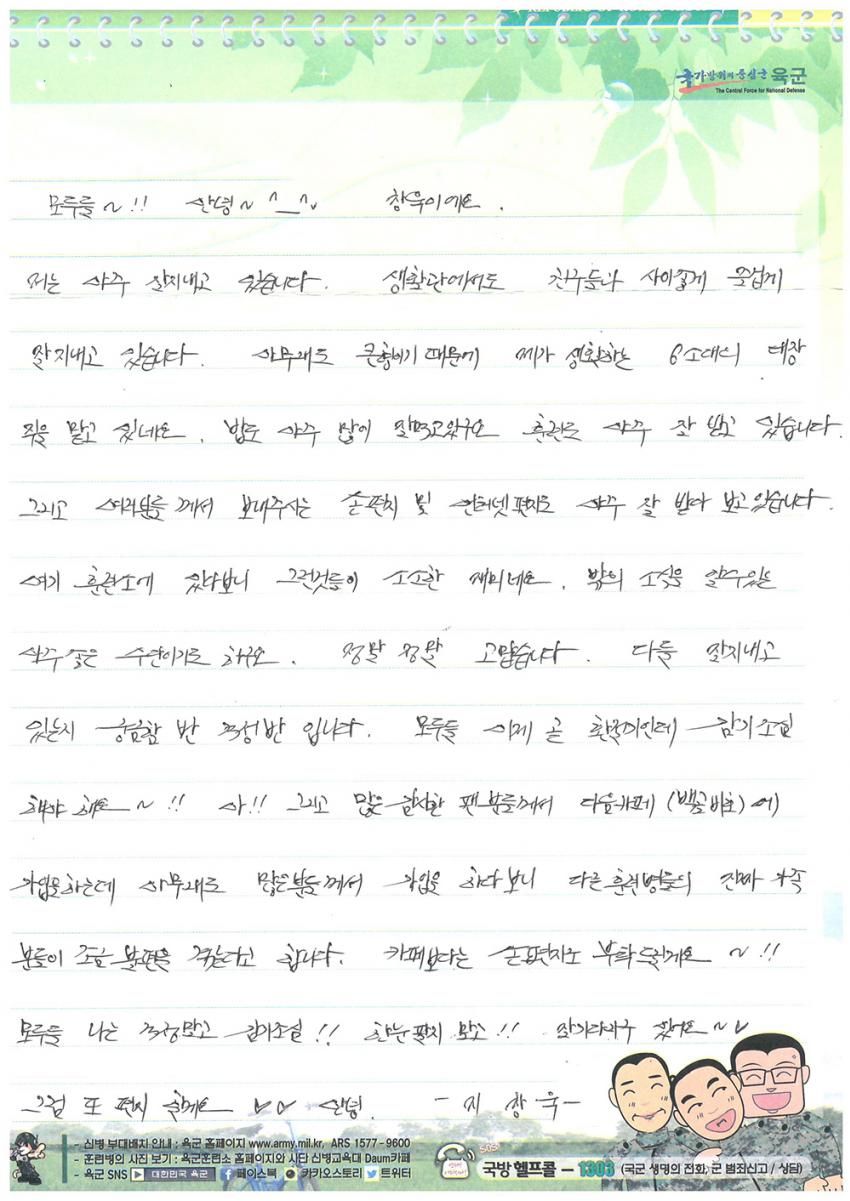 국가방위의 중심군 육군
The Central Force for National Defense
모두들~!! 안녕~ ^_^ 창욱이에요.
저는 아주 잘지내고 있습니다. 생활관에서도 친구들과 사이좋게 즐겁게
잘 지내고 있습니다. 아무래도 큰형이기 때문에 제가 생활하는 6소대의 대장
직을 맡고 있네요. 밥도 아주 많이 잘먹고있구요 훈련도 아주 잘 받고 있습니다.
그리고 여러분들께서 보내주시는 손편지 및 인터넷편지도 아주 잘 받아 보고있습니다.
여기 훈련소에 있다보니 그런것들이 소소한 재미네요. 밖의 소식을 알수있는
아주 좋은 수단이기도 하구요. 정말 정말 고맙습니다. 다들 잘지내고
있는지 궁금함 반 걱정반 입니다. 모두들 이제 곧 환절기인데 감기조심
해야 해요~!! 아!! 그리고 많은 감사한 팬분들께서 다음카페 (백골비호)에
가입을하는데 아무래도 많은분들께서 가입을 하다보니 다른 훈련병들의 진짜 가족
분들이 조금 불편을 겪는다고 합니다. 카페보다는 손편지로 부탁드릴게요~!!
모두들 나는 걱정말고 감기조심!! 한눈팔지 말고!! 잘기다리구 있어요~
그럼 또 편지 할게요 안녕. - 지 창 욱 -
- 신병 부대배치 안내 : 육군 홈페이지 www.army.mil.kr, ARS 1577-9600
- 훈련병의 사진 보기 : 육군훈련소 홈페이지와 사단 신병교육대 Daum카페
- 육군 SNS 대한민국 육군 페이스북 카카오스토리 트위터
SOS! 국방헬프콜 - 1303 (국군 생명의 전화, 군 범죄신고 / 상담)